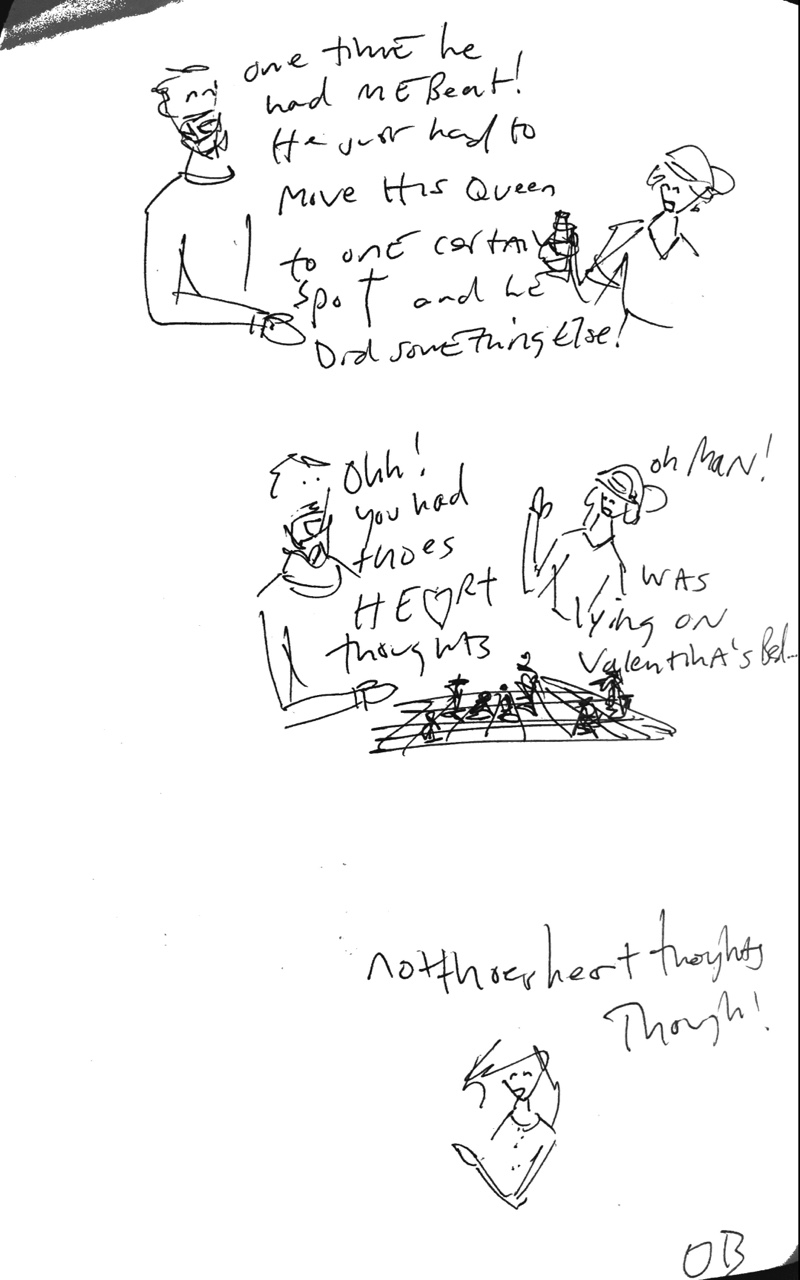 one time he
had ME Beat!
He just had to
Move His Queen
to one certain
spot and he
Did something Else!
Ohh!
you had
thoes
HE♡Rt
thoughts
oh MaN!
I WAS
lying on
ValentinA's Bed...
not thoes heart thoughts
Though!
OB